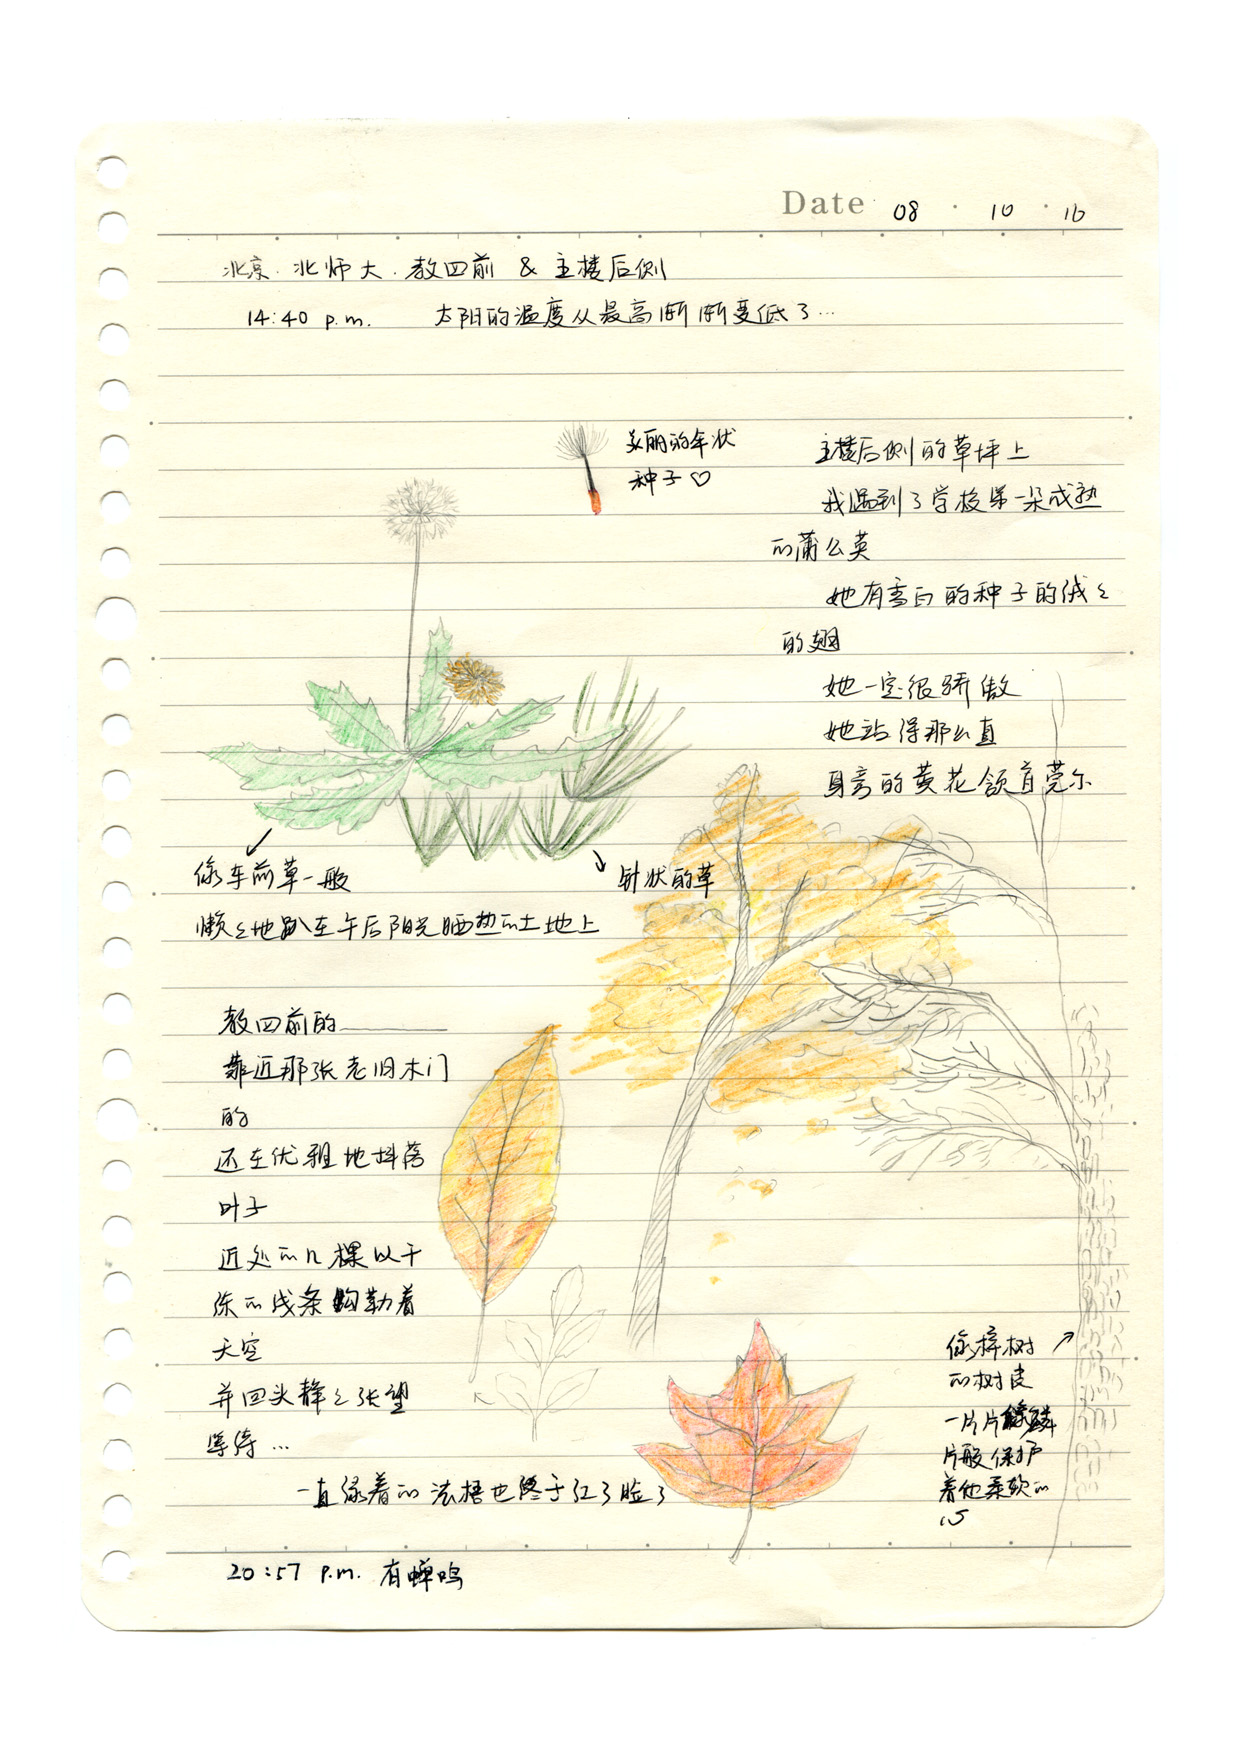 Date 08 · 10 · 16
北京·北师大·教四前 & 主楼后侧
14:40 p.m. 太阳的温度从最高渐渐变低了…
美丽的伞状
种子♡
主楼后侧的草坪上
我遇到了学校第一朵成熟
的蒲公英
她有雪白的种子的绒々
的翅
她一定很骄傲
她站得那么直
身旁的黄花颔首莞尔
像车前草一般
针状的草
懒々地趴在午后阳光晒热的土地上
教四前的
靠近那张老旧木门
的
还在优雅地抖落
叶子
近处的几棵以干
练的线条勾勒着
天空
并回头静々张望
等待…
一直绿着的法梧也终于红了脸了
像梓树
的树皮
一片片像鳞
片般保护
着他柔软的
心
20:57 p.m. 有蝉鸣